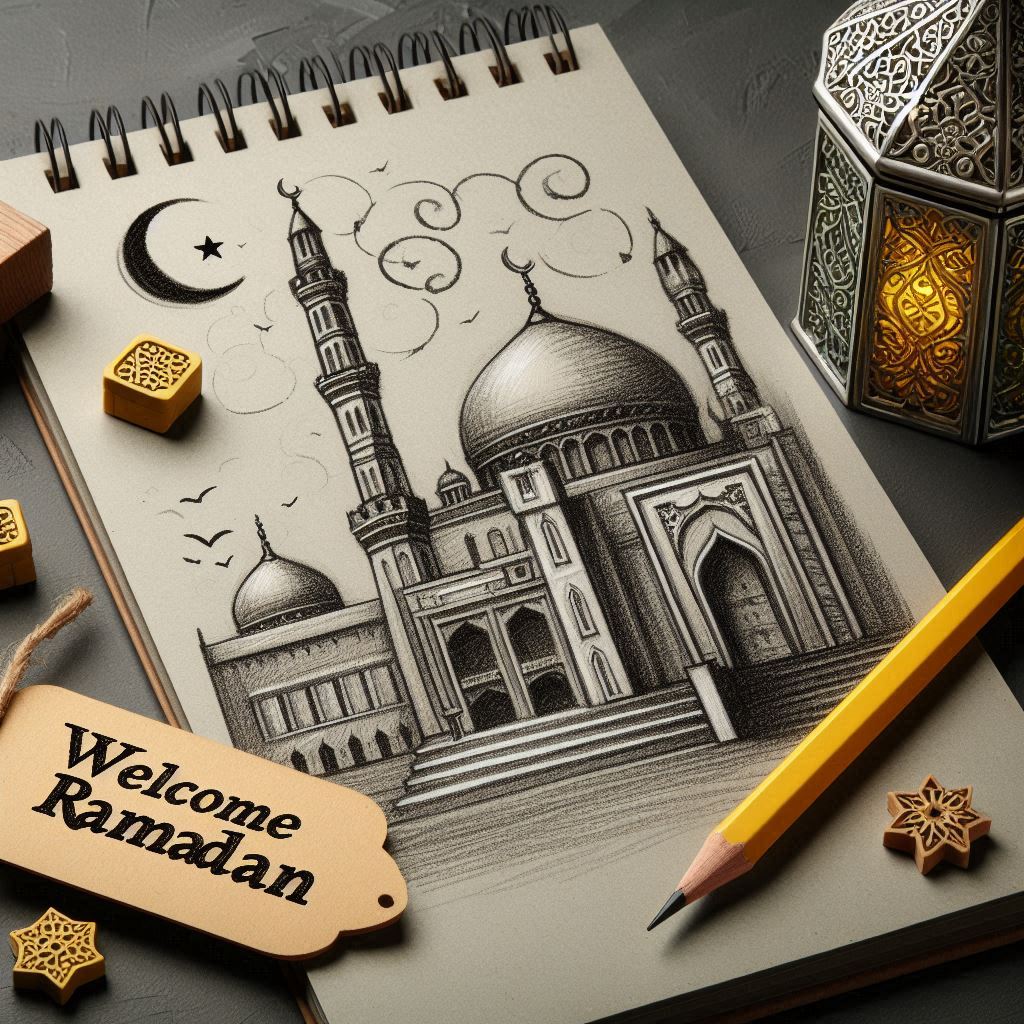 Welcome
Ramadan